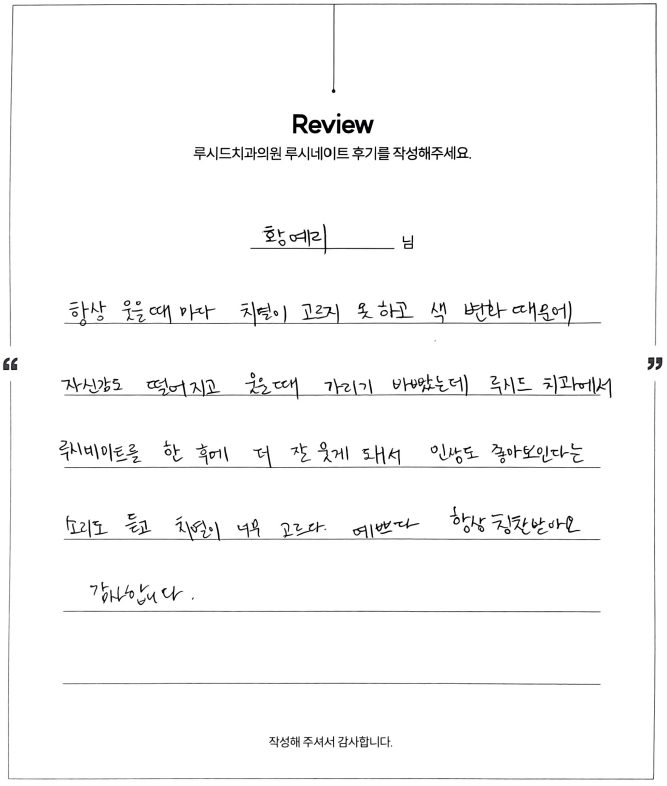 Review
루시드치과의원 루시네이트 후기를 작성해주세요.
황예리 님
항상 웃을때 마다 치열이 고르지 못하고 색 변화 때문에
“ ”
자신감도 떨어지고 웃을때 가리기 바빴는데 루시드 치과에서
루시네이트를 한 후에 더 잘 웃게 돼서 인상도 좋아보인다는
소리도 듣고 치열이 너무 고르다. 예쁘다 항상 칭찬받아요
감사합니다.
작성해 주셔서 감사합니다.